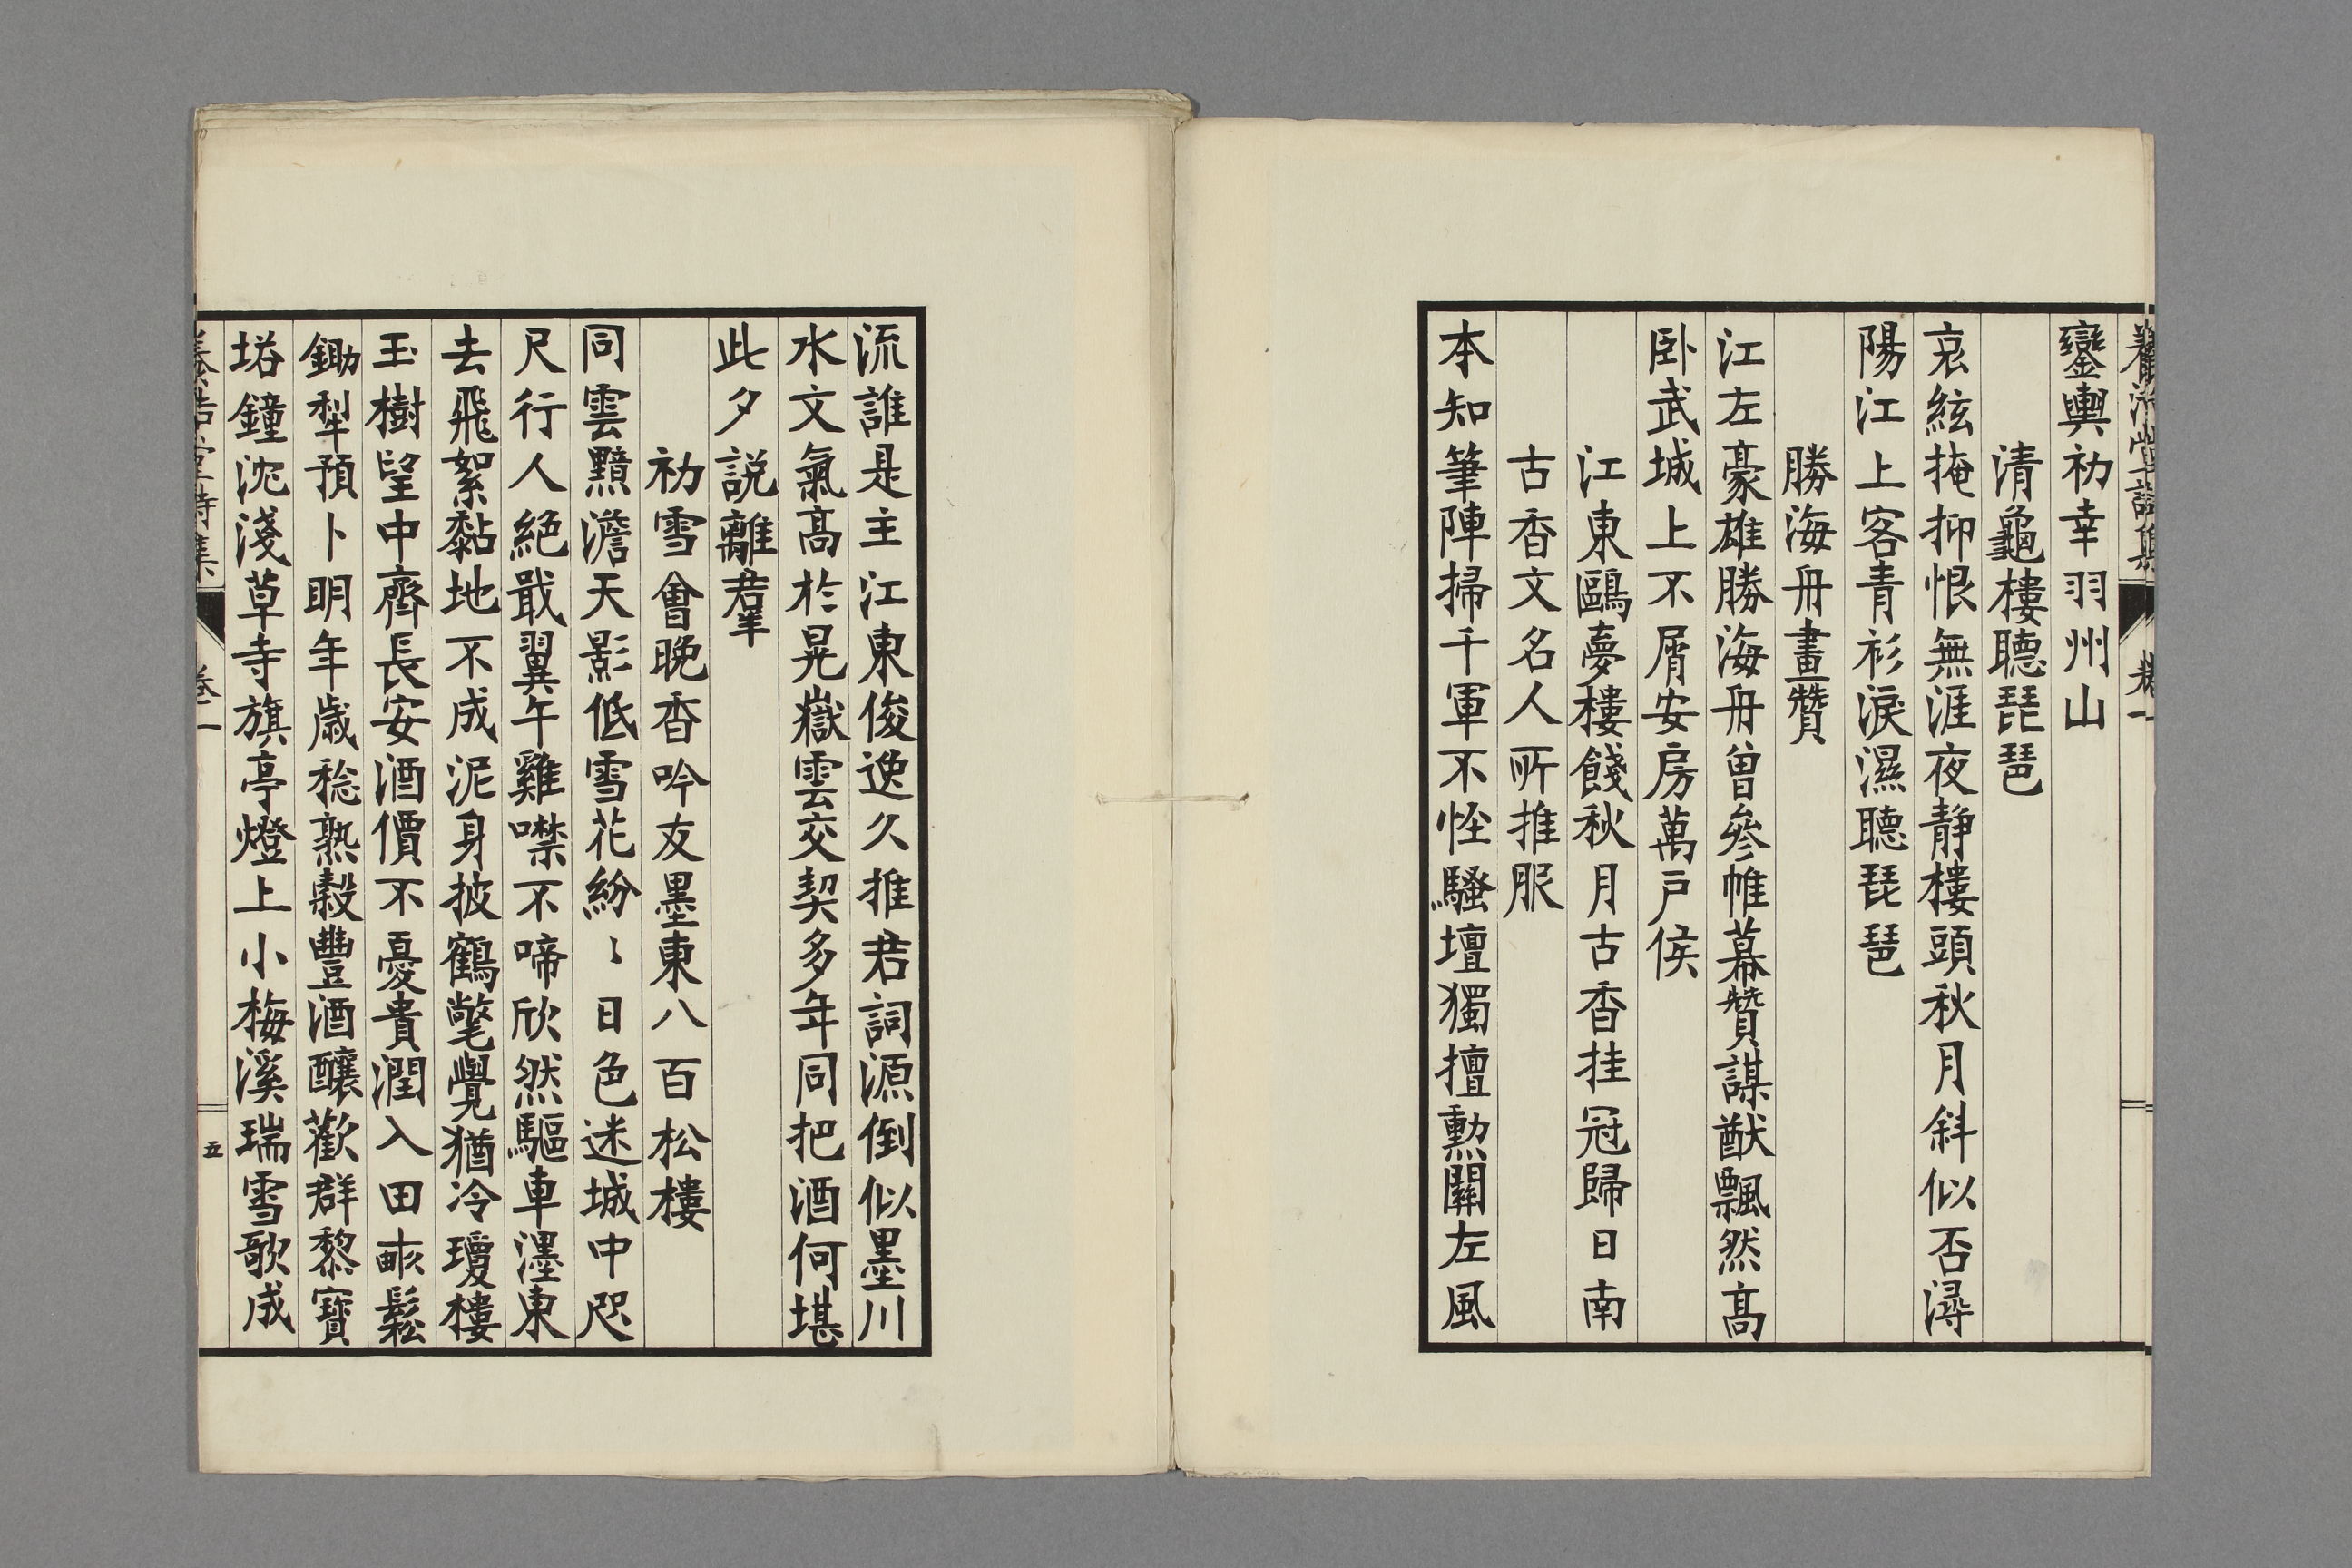 養浩堂詩集 卷一
鑾輿初幸羽州山
清龜樓聽琵琶
哀絃掩抑恨無涯夜靜樓頭秋月斜似否潯
陽江上客青衫淚濕聽琵琶
勝海舟畫贊
江左豪雄勝海舟曾參帷幕贊謀猷飄然高
卧武城上不屑安房萬戶侯
江東鷗夢樓餞秋月古香挂冠歸日南
古香文名人所推服
本知筆陣掃千軍不怪騷壇獨擅勳關左風
流誰是主江東俊逸久推君詞源倒似墨川
水文氣高於晃嶽雲交契多年同把酒何堪
此夕說離羣
初雪會晚香吟友墨東八百松樓
同雲黯澹天影低雪花紛〻日色迷城中咫
尺行人絕戢翼午雞噤不啼欣然驅車濹東
去飛絮黏地不成泥身披鶴氅覺猶冷瓊樓
玉樹望中齊長安酒價不憂貴潤入田畝鬆
鋤犁預卜明年歲稔熟穀豐酒釀歡群黎寶
塔鐘沈淺草寺旗亭燈上小梅溪瑞雪歌成
養浩堂詩集 卷一 五